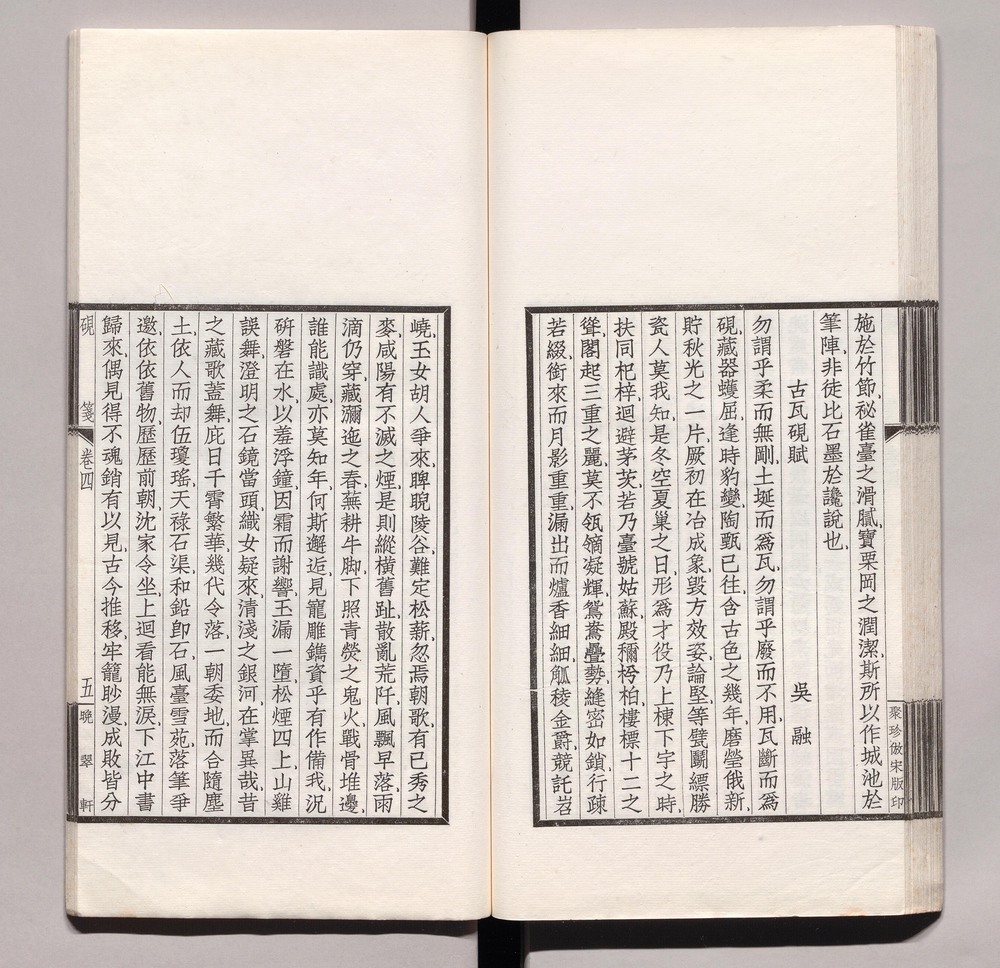 施於竹節、祕雀臺之滑膩、寶栗岡之潤潔、斯所以作城池於
筆陣、非徒比石墨於讒說也、
古瓦硯賦　吳　融
勿謂乎柔而無剛、土埏而爲瓦、勿謂乎廢而不用、瓦斷而爲
硯、藏器蠖屈、逢時豹變、陶甄已往、含古色之幾年、磨瑩俄新、
貯秋光之一片、厥初在冶成象、毀方效姿、論堅等甓、鬬縹勝
瓷、人莫我知、是冬空夏巢之日、形爲才役、乃上棟下宇之時、
扶同杞梓、迴避茅茨、若乃臺號姑蘇、殿稱枍栺、樓標十二之
聳、閣起三重之麗、莫不瓴甋凝輝、鴛鴦疊勢、縫密如鎖、行疎
若綴、銜來而月影重重、漏出而爐香細細、觚稜金爵、競託岧
嶢、玉女胡人、爭來睥睨、陵谷難定、松薪忽焉、朝歌有已秀之
麥、咸陽有不滅之煙、是則縱橫舊趾、散亂荒阡、風飄早落、雨
滴仍穿、藏瀰迤之春蕪、耕牛脚下、照青熒之鬼火、戰骨堆邊、
誰能識處、亦莫知年、何斯邂逅、見寵雕鐫、資乎有作、備我沉
硏、磐在水以羞浮、鐘因霜而謝響、玉漏一墮、松煙四上、山雞
誤舞、澄明之石鏡當頭、織女疑來、清淺之銀河在掌、異哉昔
之藏歌蓋舞、庇日千霄、繁華幾代、令落一朝、委地而合隨塵
土、依人而却伍瓊瑤、天祿石渠、和鉛卽石、風臺雪苑、落筆爭
邀、依依舊物、歷歷前朝、沈家令坐上迴看、能無淚下、江中書
歸來偶見、得不魂銷、有以見古今推移、牢籠眇漫、成敗皆分
硯　箋　卷四　五　曉翠軒
聚珍倣宋版印